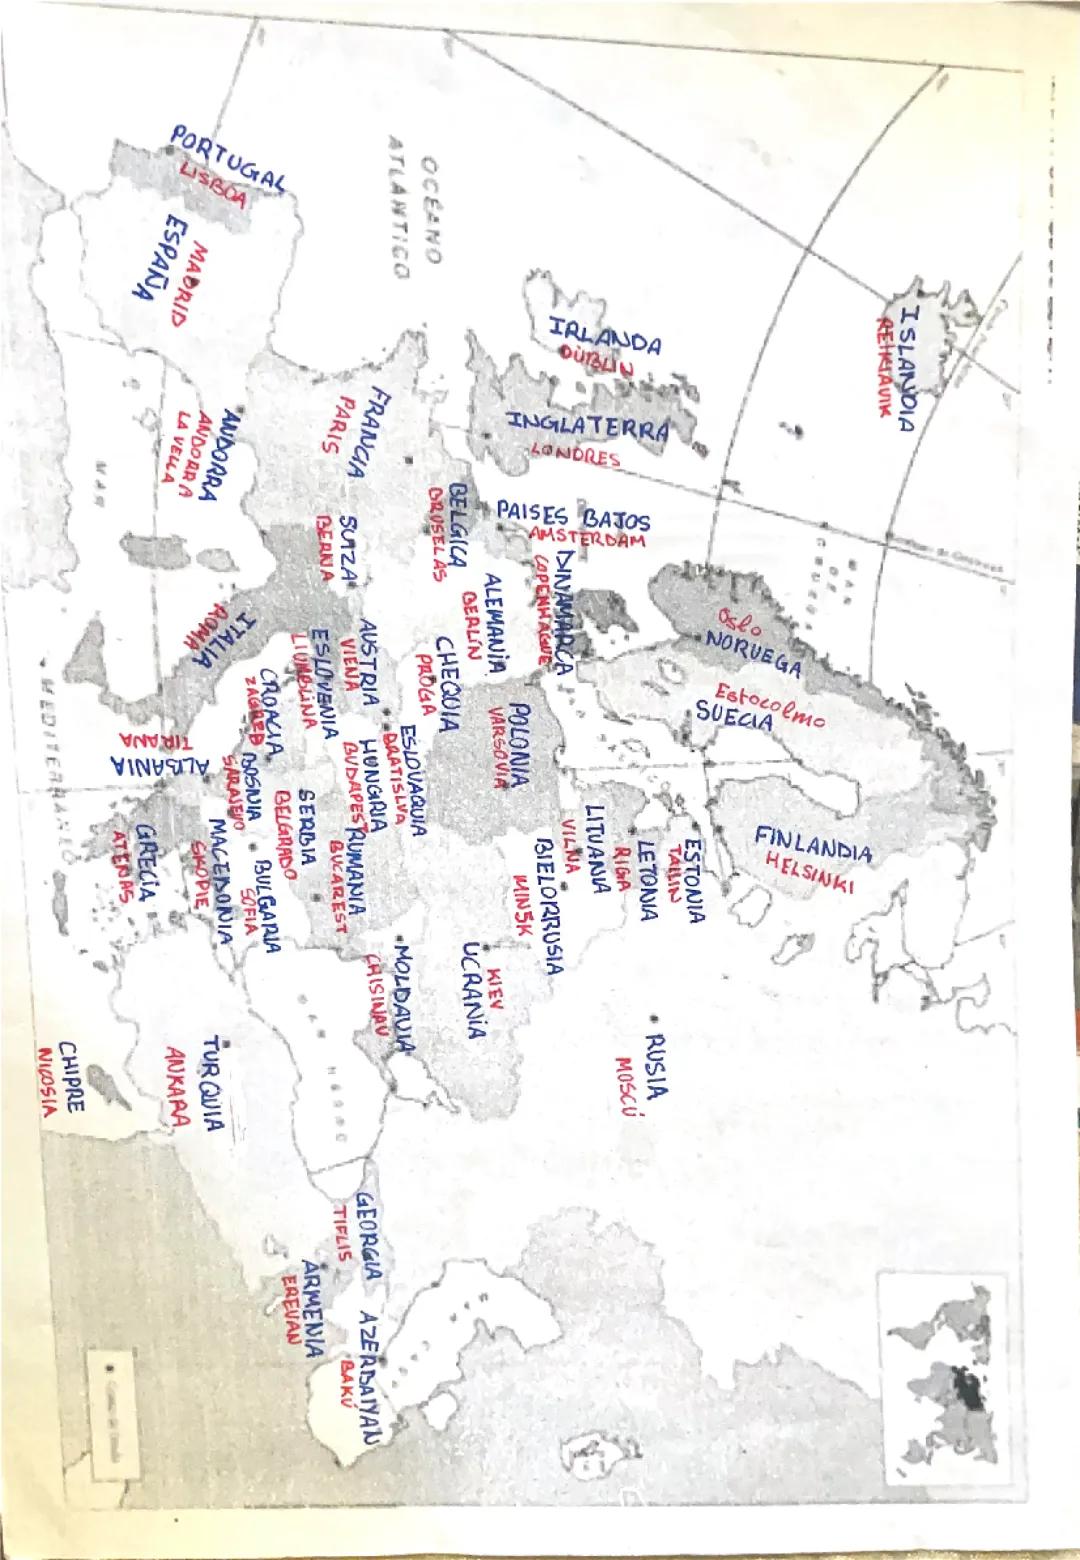 ISLANDIA
REIKIAVIK
IRLANDA
DUBLIN
INGLATERRA
LONDRES
OCEANO
ATLÁNTICO
PORTUGAL
LISBOA
MADRID
ESPAÑA
FRANCIA
PARIS
ANDORRA
ANDORRA
LA VELLA
PAISES BAJOS
AMSTERDAM
BELGICA
BRUSELAS
DINAMARCA
COPENHAGUE
ALEMANIA
BERLÍN
SUIZA
BERNA
Oslo
NORUEGA
Estocolmo
SUECIA
FINLANDIA
HELSINKI
ESTONIA
TALLIN
LETONIA
RIGA
LITUANIA
VILNA
POLONIA
VARSOVIA
BIELORRUSIA
MINSK
CHEQUIA
PROGA
ESLOVAQUIA
BRATISLVA
AUSTRIA
VIENA
HUNGRIA
BUDAPEST
RUMANIA
BUCAREST
ESLOVENIA
LIUNBLINA
SERBIA
BELGRADO
CROACIA
ZAGREB
BOSNIA
SARAJEVO
BULGARIA
SOFIA
ITALIA
ROMA
MACEDONIA
SKOPIE
ALBANIA
TIRANA
GRECIA
ATENAS
MAR
MEDITERRANEO
UCRANIA
KIEV
MOLDAVIA
CHISINAU
RUSIA
MOSCÚ
TURQUIA
ANKARA
CHIPRE
NICOSIA
GEORGIA
TIFLIS
ARMENIA
EREVAN
AZERBAIYAN
BAKÚ